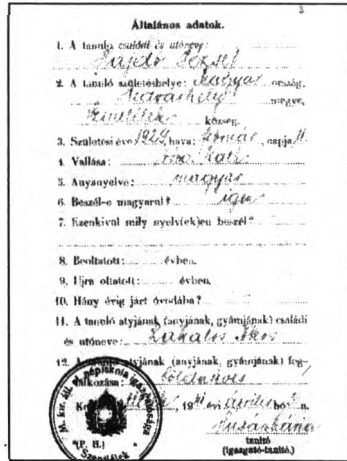 3
Általános adatok.
1. A tanuló családi és utóneve:
József
2. A tanuló születéshelye: Magyar ország,
Udvarhely megye,
Szentlélek község.
3. Születési éve 1929, hava: , napja 11
4. Vallása: róm. kath.
5. Anyanyelve: magyar
6. Beszél-e magyarul? igen
7. Ezenkívül mily nyelv(ek)en beszél?
8. Beoltatott: évben.
9. Ujra oltatott: évben.
10. Hány évig járt óvodába?
11. A tanuló atyjának (anyjának, gyámjának) családi
és utóneve: Ákos
12. A tanuló atyjának (anyjának, gyámjának) fog-
lalkozása: földműves
19 évi április hó n.
(P. H.)
tanító
(igazgató-tanító.)
M. kir. áll. népiskola